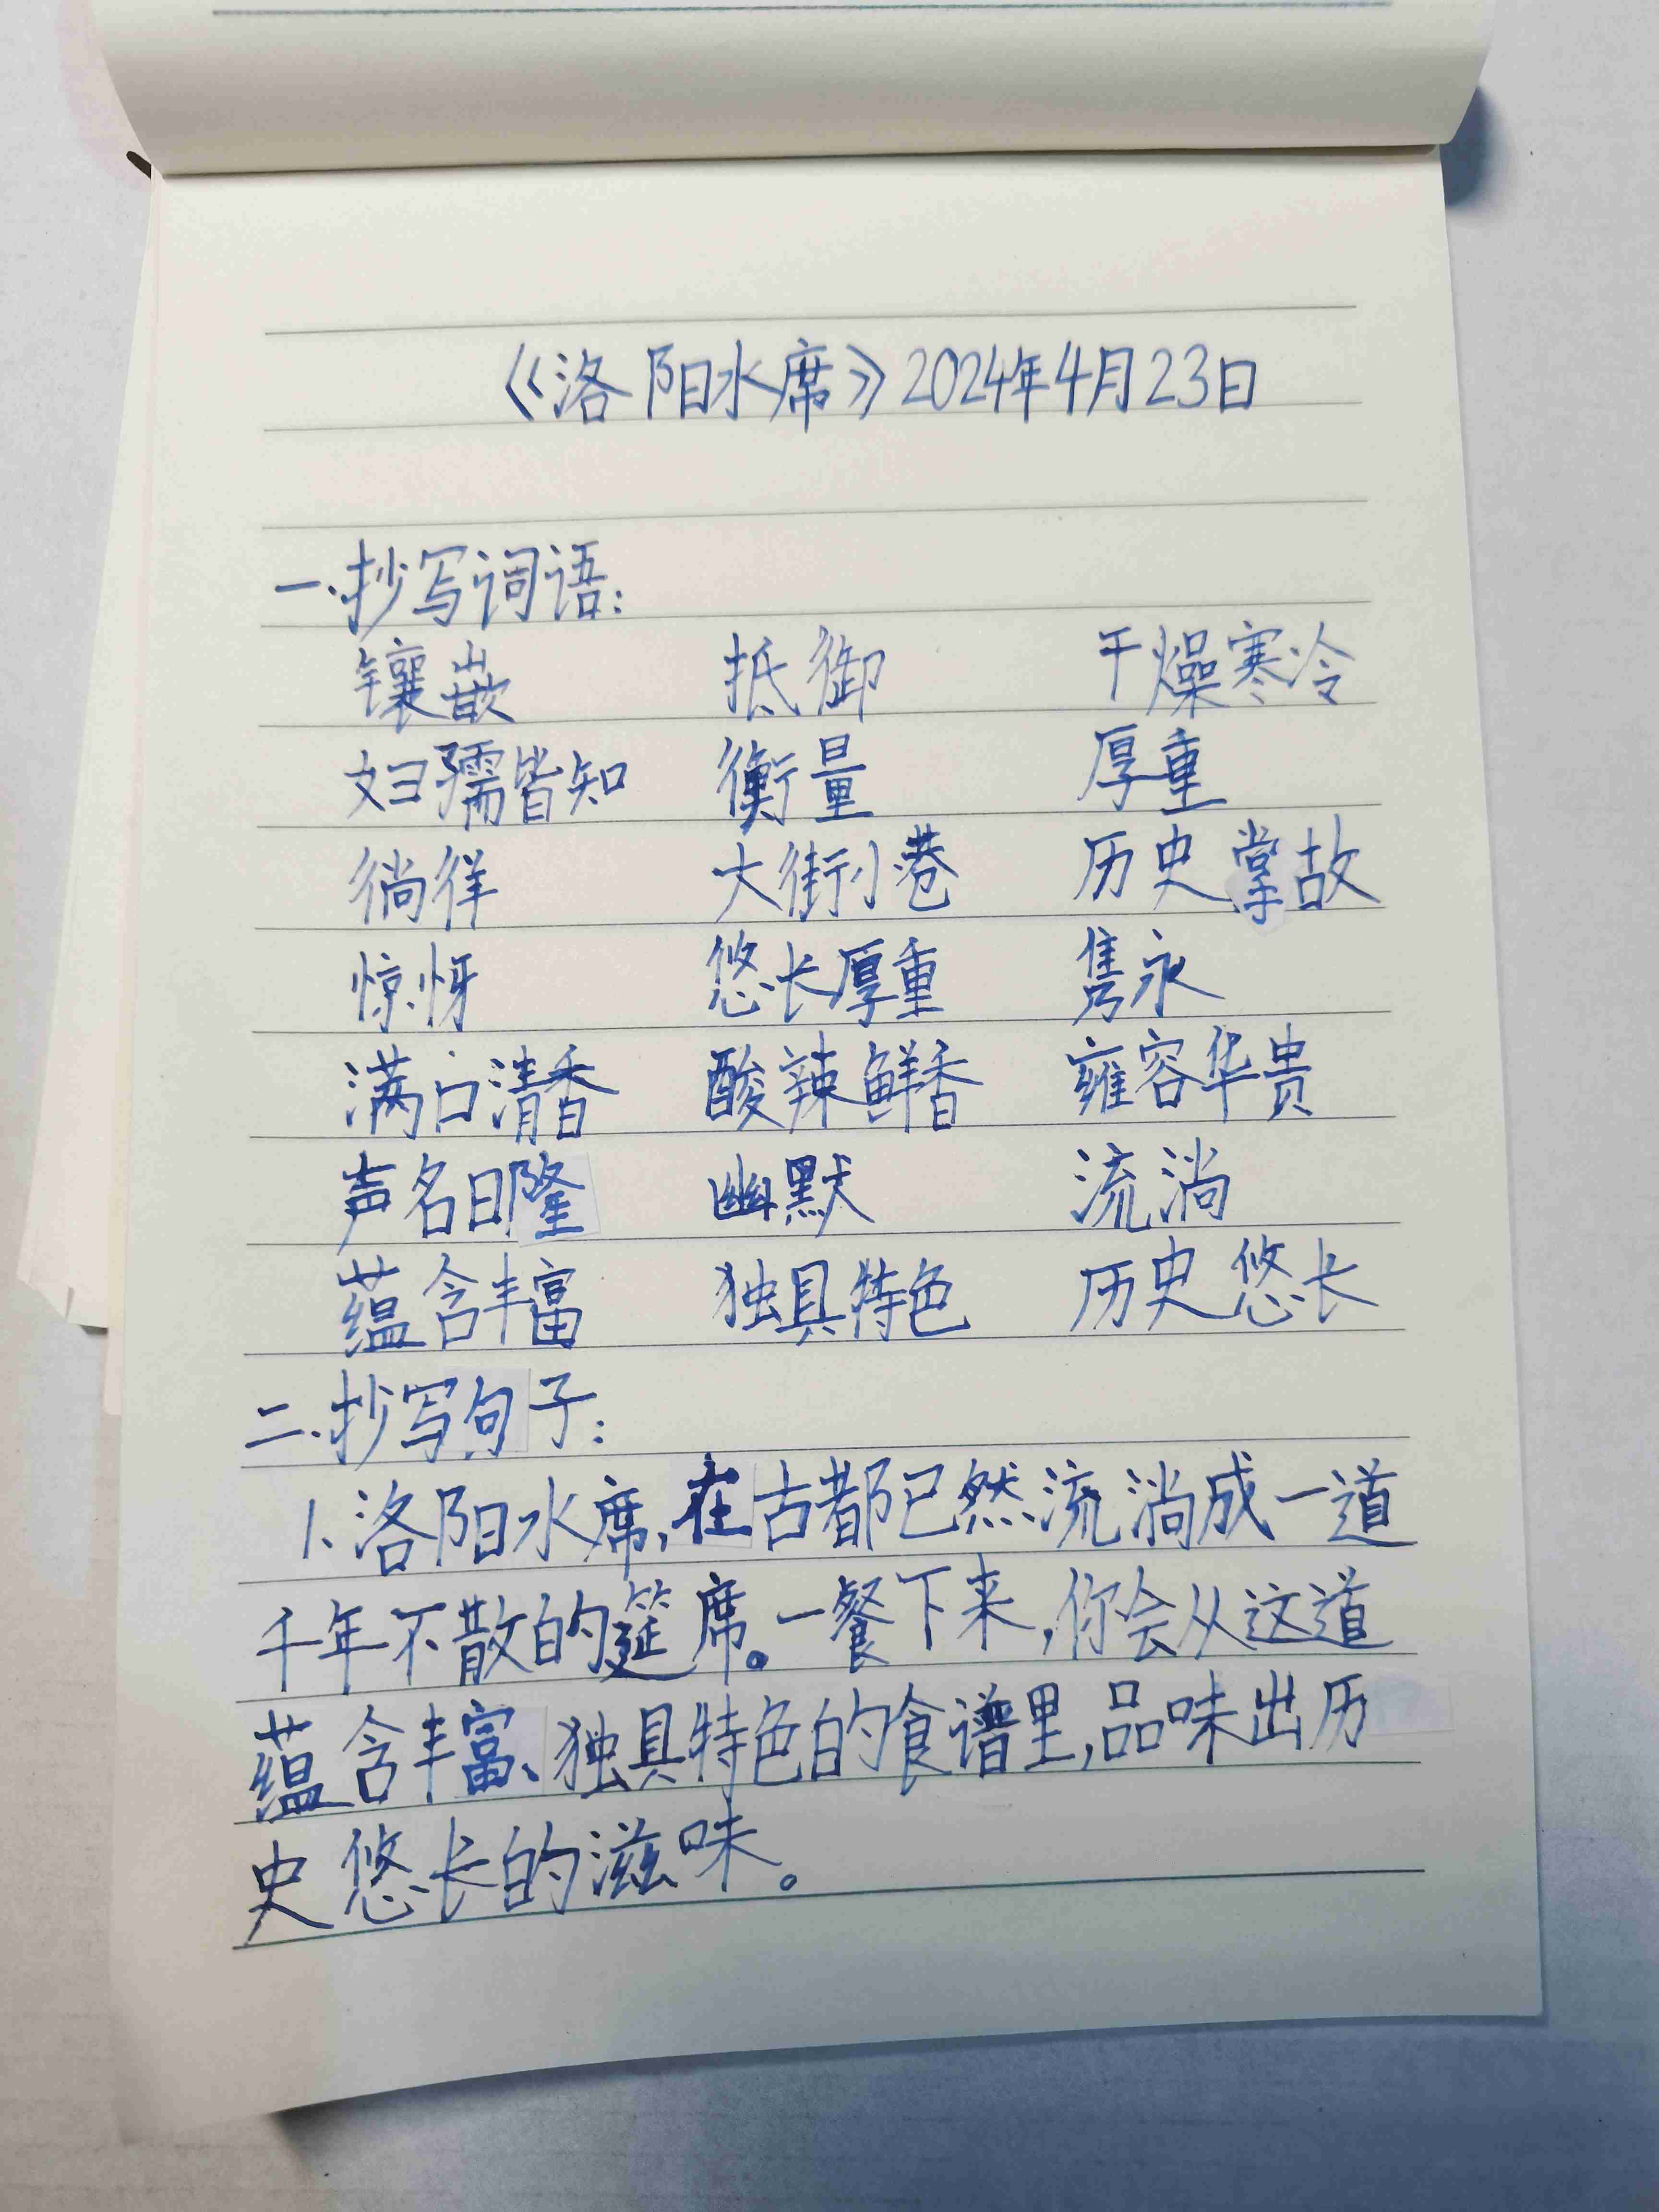 《洛阳水席》2024年4月23日
一.抄写词语:
镶嵌 抵御 干燥寒冷
妇孺皆知 衡量 厚重
徜徉 大街小巷 历史掌故
惊讶 悠长厚重 隽永
满口清香 酸辣鲜香 雍容华贵
声名日隆 幽默 流淌
蕴含丰富 独具特色 历史悠长
二.抄写句子:
1.洛阳水席,在古都已然流淌成一道
千年不散的筵席。一餐下来,你会从这道
蕴含丰富、独具特色的食谱里,品味出历
史悠长的滋味。